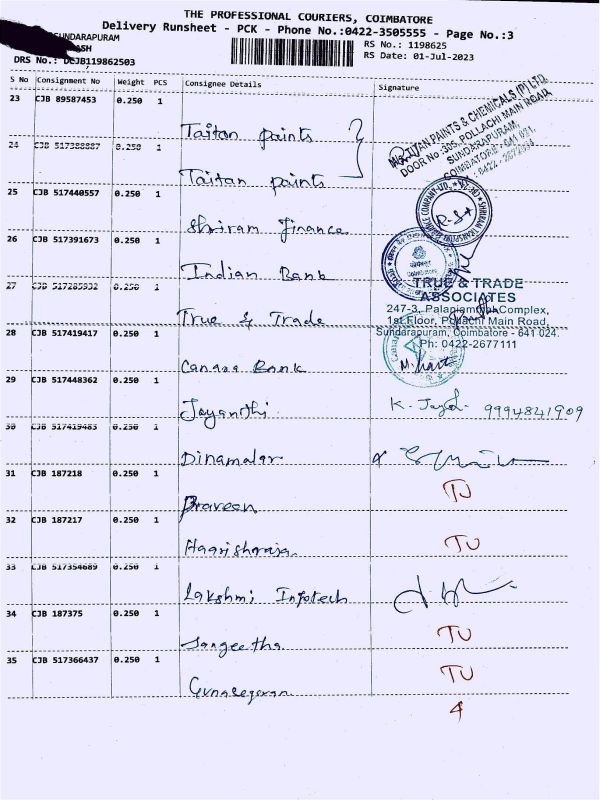 THE PROFESSIONAL COURIERS, COIMBATORE
Delivery Runsheet - PCK - Phone No.:0422-3505555 - Page No.:3
SUNDARAPURAM
ASH
RS No.: 1198625
DRS No.: DCJB119862503
RS Date: 01-Jul-2023
S No Consignment No Weight PCS Consignee Details Signature
23 CJB 89587453 0.250 1
Taitan paints
24 CJB 517388887 0.250 1
Taitan paints
M/s.TITAN PAINTS & CHEMICALS (P) LTD.
DOOR No.-305, POLLACHI MAIN ROAD
SUNDARAPURAM,
COIMBATORE - 641 031.
25 CJB 517440557 0.250 1
Shriram Finance
26 CJB 517391673 0.250 1
Indian Bank
27 CJB 517285932 0.250 1
True & Trade
TRUE & TRADE
ASSOCIATES
247-3, Palaniammah Complex,
1st Floor, Pollachi Main Road,
Sundarapuram, Coimbatore - 641 024.
Ph: 0422-2677111
28 CJB 517419417 0.250 1
Canara Bank
29 CJB 517448362 0.250 1
Jayanthi
K. Jayol. 9994841909
30 CJB 517419483 0.250 1
Dinamalar
31 CJB 187218 0.250 1
Praveen
TU
32 CJB 187217 0.250 1
Haarishraja
TU
33 CJB 517354689 0.250 1
Lakshmi Infotech
34 CJB 187375 0.250 1
Sangeetha
TU
35 CJB 517366437 0.250 1
Gunasegaran
TU
4